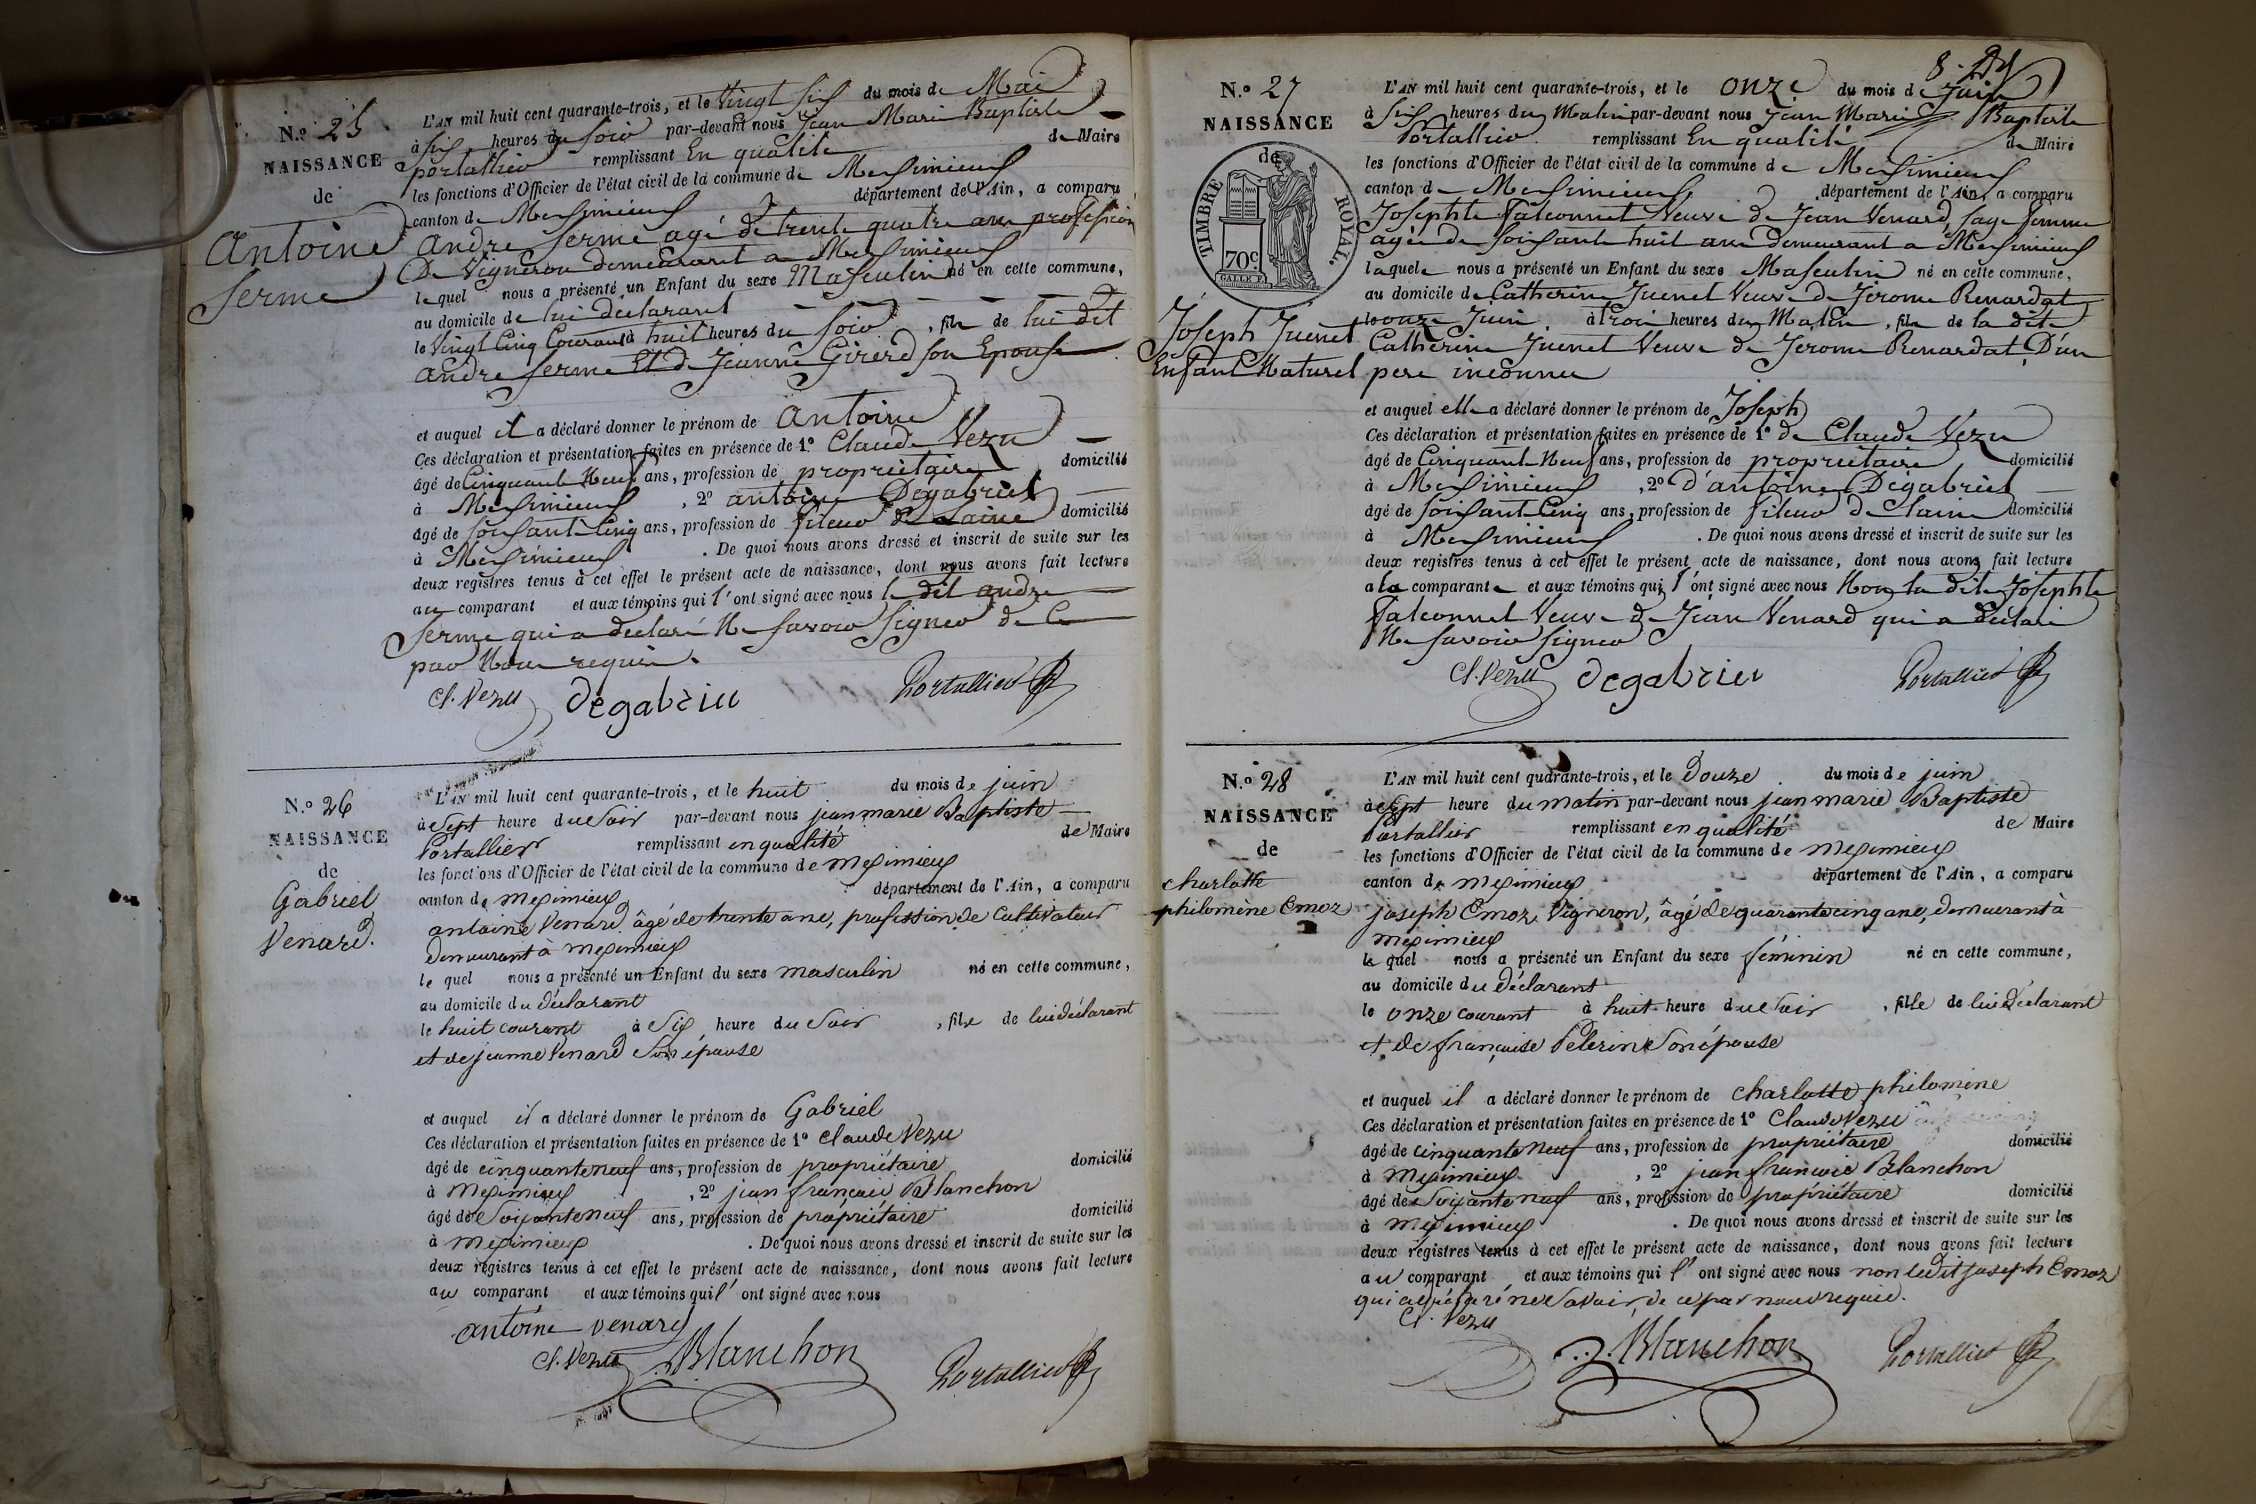 N.º 25
NAISSANCE
de
Antoine
Serme
L'AN mil huit cent quarante-trois, et le Vingt Six du mois de Mai
à Six heures du Soir par-devant nous Jean Marie Baptiste
portallier remplissant En qualité de Maire
les fonctions d'Officier de l'état civil de la commune de Meximieux
canton de Meximieux département de l'Ain, a comparu
andre Serme agé de trente quatre ans profession
De Vigneron demeurant a Meximieux
lequel nous a présenté un Enfant du sexe Masculin né en cette commune,
au domicile de lui déclarant
le Vingt Cinq Courant à huit heures du Soir, fils de lui dit
andre Serme Et de Jeanne Girerd son Epouse
et auquel il a déclaré donner le prénom de antoine
Ces déclaration et présentation faites en présence de 1º Claude Vezu
âgé de Cinquante Neuf ans, profession de propriétaire domicilié
à Meximieux, 2º antoine Degabriel
âgé de soixante Cinq ans, profession de fileur de Laine domicilié
à Meximieux. De quoi nous avons dressé et inscrit de suite sur les
deux registres tenus à cet effet le présent acte de naissance, dont nous avons fait lecture
au comparant et aux témoins qui l'ont signé avec nous le dit andre
Serme qui a declaré Ne savoir Signer de Ce
par Nous requis.
Cl. Vezu degabriel Portallier
N.º 26
NAISSANCE
de
Gabriel
Venard.
L'AN mil huit cent quarante-trois, et le huit du mois de juin
à Sept heure du Soir par-devant nous jean marie Baptiste
Portallier remplissant en qualité de Maire
les fonctions d'Officier de l'état civil de la commune de meximieux
canton de meximieux département de l'Ain, a comparu
antoine Venard âgé de trente ans, profession de Cultivateur
demeurant à meximieux
le quel nous a présenté un Enfant du sexe masculin né en cette commune,
au domicile du déclarant
le huit courant à Six heure du Soir, fils de lui déclarant
et de jeanne Venard Son épouse
et auquel il a déclaré donner le prénom de Gabriel
Ces déclaration et présentation faites en présence de 1º Claude Vezu
âgé de cinquante neuf ans, profession de propriétaire domicilié
à meximieux, 2º jean françois Blanchon
âgé de Soixante neuf ans, profession de propriétaire domicilié
à meximieux. De quoi nous avons dressé et inscrit de suite sur les
deux registres tenus à cet effet le présent acte de naissance, dont nous avons fait lecture
au comparant et aux témoins qui l'ont signé avec nous
antoine venard
Cl. Vezu J. Blanchon Portallier
N.º 27
NAISSANCE
de
TIMBRE ROYAL.
70c
Joseph Juenet
Enfant Naturel
L'AN mil huit cent quarante-trois, et le onze du mois de Juin
à Six heures du Matin par-devant nous Jean Marie Baptiste
Portallier remplissant En qualité de Maire
les fonctions d'Officier de l'état civil de la commune de Meximieux
canton de Meximieux département de l'Ain, a comparu
Josephte Falconnet Veuve de Jean Venard, sage femme
agée de soixante huit ans demeurant a Meximieux
laquele nous a présenté un Enfant du sexe Masculin né en cette commune,
au domicile de Catherine Juenet Veuve de Jérome Renardat
le onze Juin à trois heures du Matin, fils de la dite
Catherine Juenet Veuve de Jerome Renardat, D'un
pere inconnu
et auquel elle a déclaré donner le prénom de Joseph
Ces déclaration et présentation faites en présence de 1º de Claude Vezu
âgé de Cinquante Neuf ans, profession de propriétaire domicilié
à Meximieux, 2º d'antoine Degabriel
âgé de soixante Cinq ans, profession de fileur de laine domicilié
à Meximieux. De quoi nous avons dressé et inscrit de suite sur les
deux registres tenus à cet effet le présent acte de naissance, dont nous avons fait lecture
a la comparante et aux témoins qui l'ont signé avec nous Non la dite Josephte
Falconnet Veuve de Jean Venard qui a déclaré
Ne savoir signer
Cl. Vezu degabriel Portallier
N.º 28
NAISSANCE
de
charlotte
philomène Emoz
L'AN mil huit cent quarante-trois, et le Douze du mois de juin
à Sept heure du matin par-devant nous jean marie Baptiste
Portallier remplissant en qualité de Maire
les fonctions d'Officier de l'état civil de la commune de meximieux
canton de meximieux département de l'Ain, a comparu
joseph Emoz Vigneron, âgé de quarante cinq ans, demeurant à
meximieux
le quel nous a présenté un Enfant du sexe féminin né en cette commune,
au domicile du déclarant
le onze courant à huit heure du Soir, fille de lui déclarant
et de françoise Pelerin Son épouse
et auquel il a déclaré donner le prénom de charlotte philomène
Ces déclaration et présentation faites en présence de 1º Claude Vezu
âgé de cinquante neuf ans, profession de propriétaire domicilié
à meximieux, 2º jean françois Blanchon
âgé de Soixante neuf ans, profession de propriétaire domicilié
à meximieux. De quoi nous avons dressé et inscrit de suite sur les
deux registres tenus à cet effet le présent acte de naissance, dont nous avons fait lecture
au comparant et aux témoins qui l'ont signé avec nous non ledit joseph Emoz
qui a déclaré ne Savoir, de ce par nous requis.
Cl. Vezu
J. Blanchon Portallier